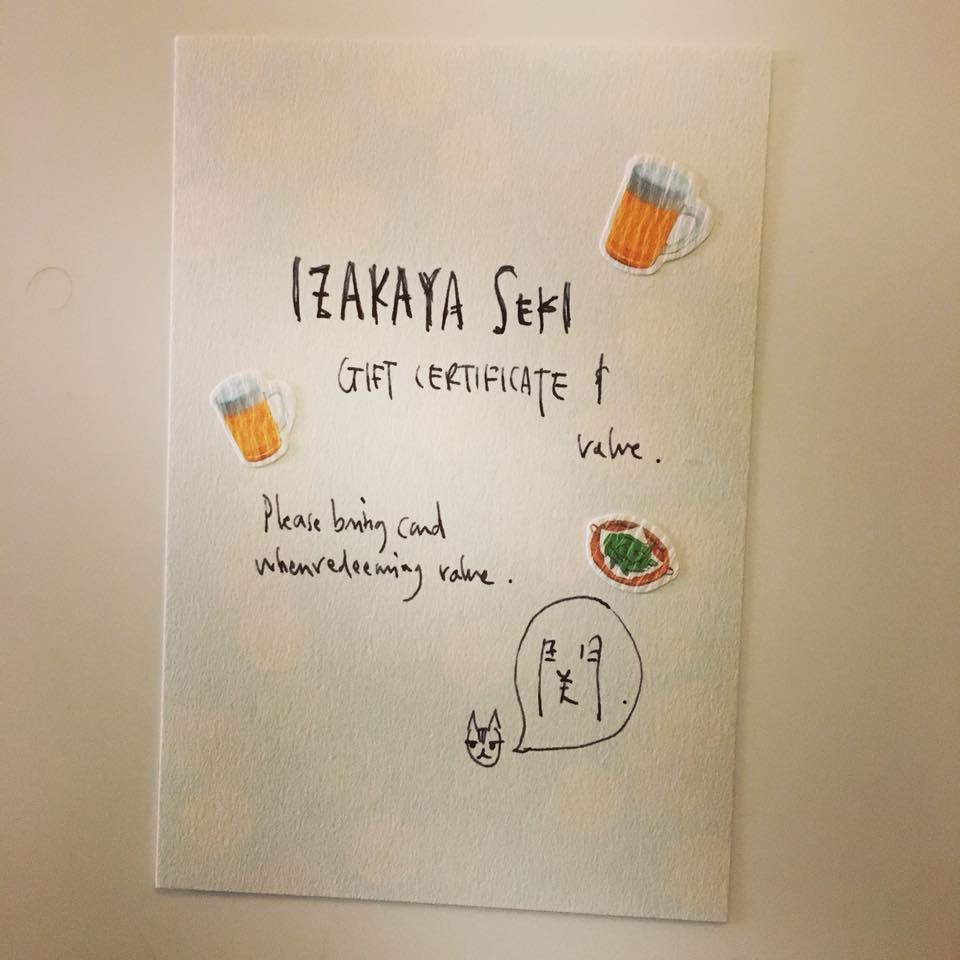 IZAKAYA SEKI
GIFT CERTIFICATE $
value.
Please bring card
when redeeming value.
関